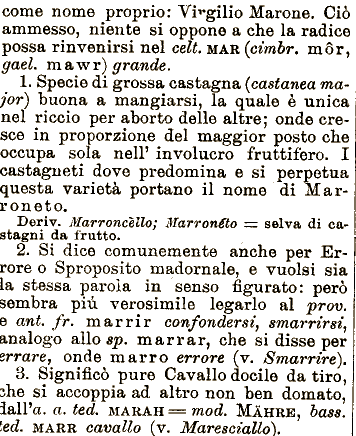 come nome proprio: Virgilio Marone. Ciò
ammesso, niente si oppone a che la radice
possa rinvenirsi nel celt. MAR (cimbr. môr,
gael. mawr) grande.
1. Specie di grossa castagna (castanea ma-
jor) buona a mangiarsi, la quale è unica
nel riccio per aborto delle altre; onde cre-
sce in proporzione del maggior posto che
occupa sola nell' involucro fruttifero. I
castagneti dove predomina e si perpetua
questa varietà portano il nome di Mar-
roneto.
Deriv. Marroncèllo; Marronéto = selva di ca-
stagni da frutto.
2. Si dice comunemente anche per Er-
rore o Sproposito madornale, e vuolsi sia
la stessa parola in senso figurato: però
sembra più verosimile legarlo al prov.
e ant. fr. marrir confondersi, smarrirsi,
analogo allo sp. marrar, che si disse per
errare, onde marro errore (v. Smarrire).
3. Significò pure Cavallo docile da tiro,
che si accoppia ad altro non ben domato,
dall'a. a. ted. MARAH = mod. MÄHRE, bass.
ted. MARR cavallo (v. Maresciallo).